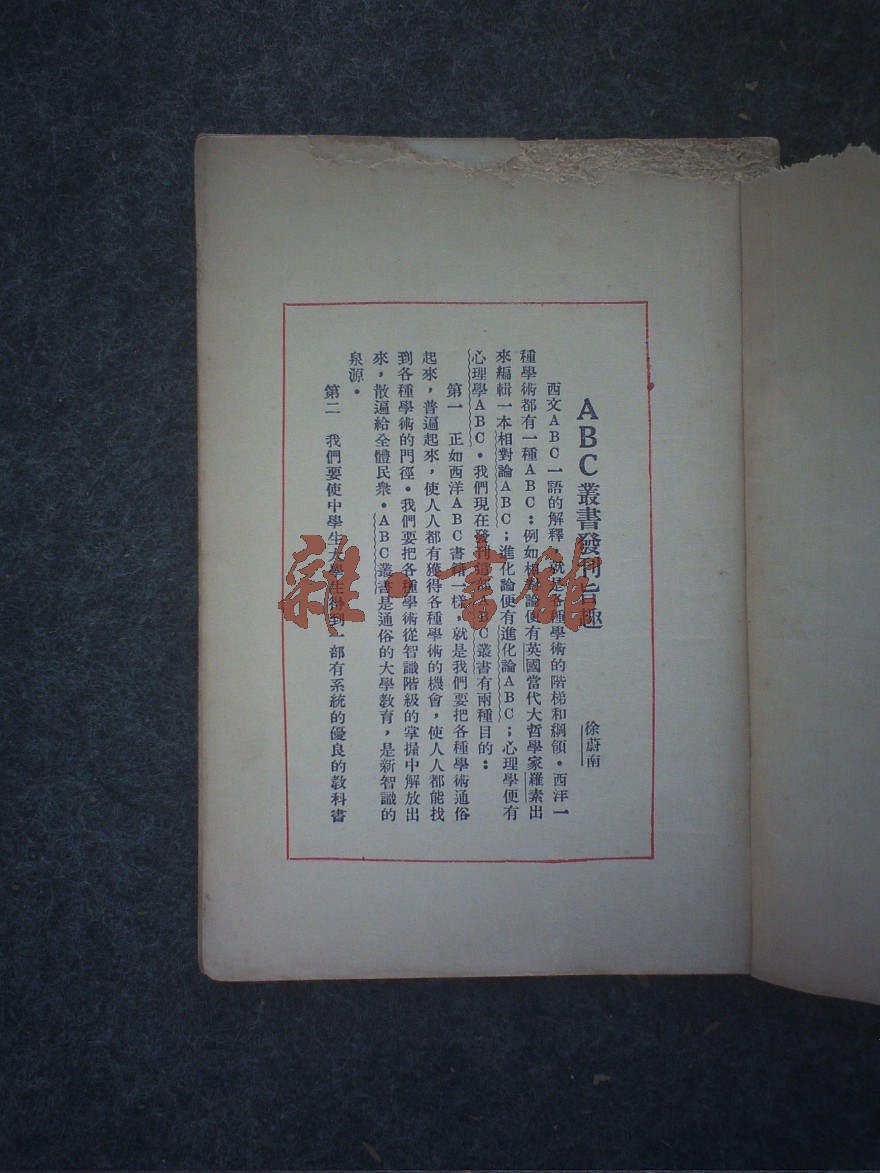 ABC叢書發刊旨趣
徐蔚南
西文ABC一語的解釋，就是各種學術的階梯和綱領。西洋一
種學術都有一種ABC：例如相對論便有英國當代大哲學家羅素出
來編輯一本相對論ABC；進化論便有進化論ABC；心理學便有
心理學ABC。我們現在發刊這部ABC叢書有兩種目的：
第一　正如西洋ABC書籍一樣，就是我們要把各種學術通俗
起來，普遍起來，使人人都有獲得各種學術的機會，使人人都能找
到各種學術的門徑。我們要把各種學術從智識階級的掌握中解放出
來，散遍給全體民衆。ABC叢書是通俗的大學教育，是新智識的
泉源。
第二　我們要使中學生大學生得到一部有系統的優良的教科書
雜·書館